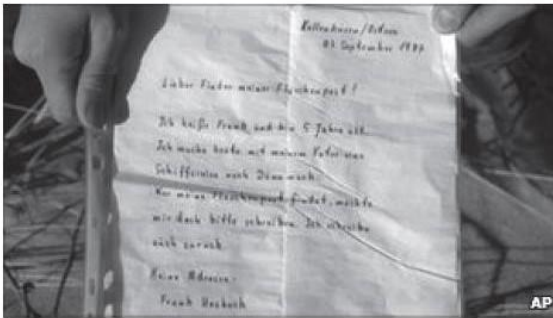 Kellenhusen/Ostsee
07. September 1987
Lieber Finder meiner Flaschenpost!
Ich heiße Frank und bin 5 Jahre alt.
Ich mache heute mit meinem Vater eine
Schiffsreise nach Dänemark.
Wer meine Flaschenpost findet, möchte
mir doch bitte schreiben. Ich schreibe
auch zurück
Meine Adresse:
Frank
AP